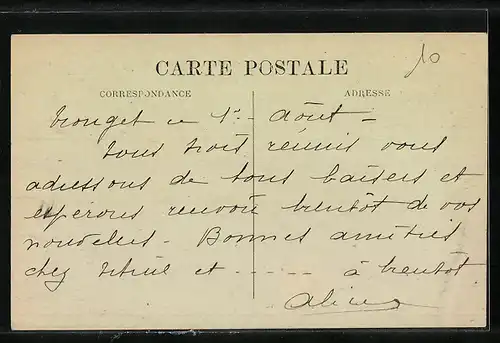 10
CARTE POSTALE
CORRESPONDANCE
ADRESSE
Tronget ce 1er Août
tous trois réunis vous
adressons de bons baisers et
espérons revoir bientôt de vos
nouvelles - Bonnes amitiés
chez et ----- à bientôt
Aline